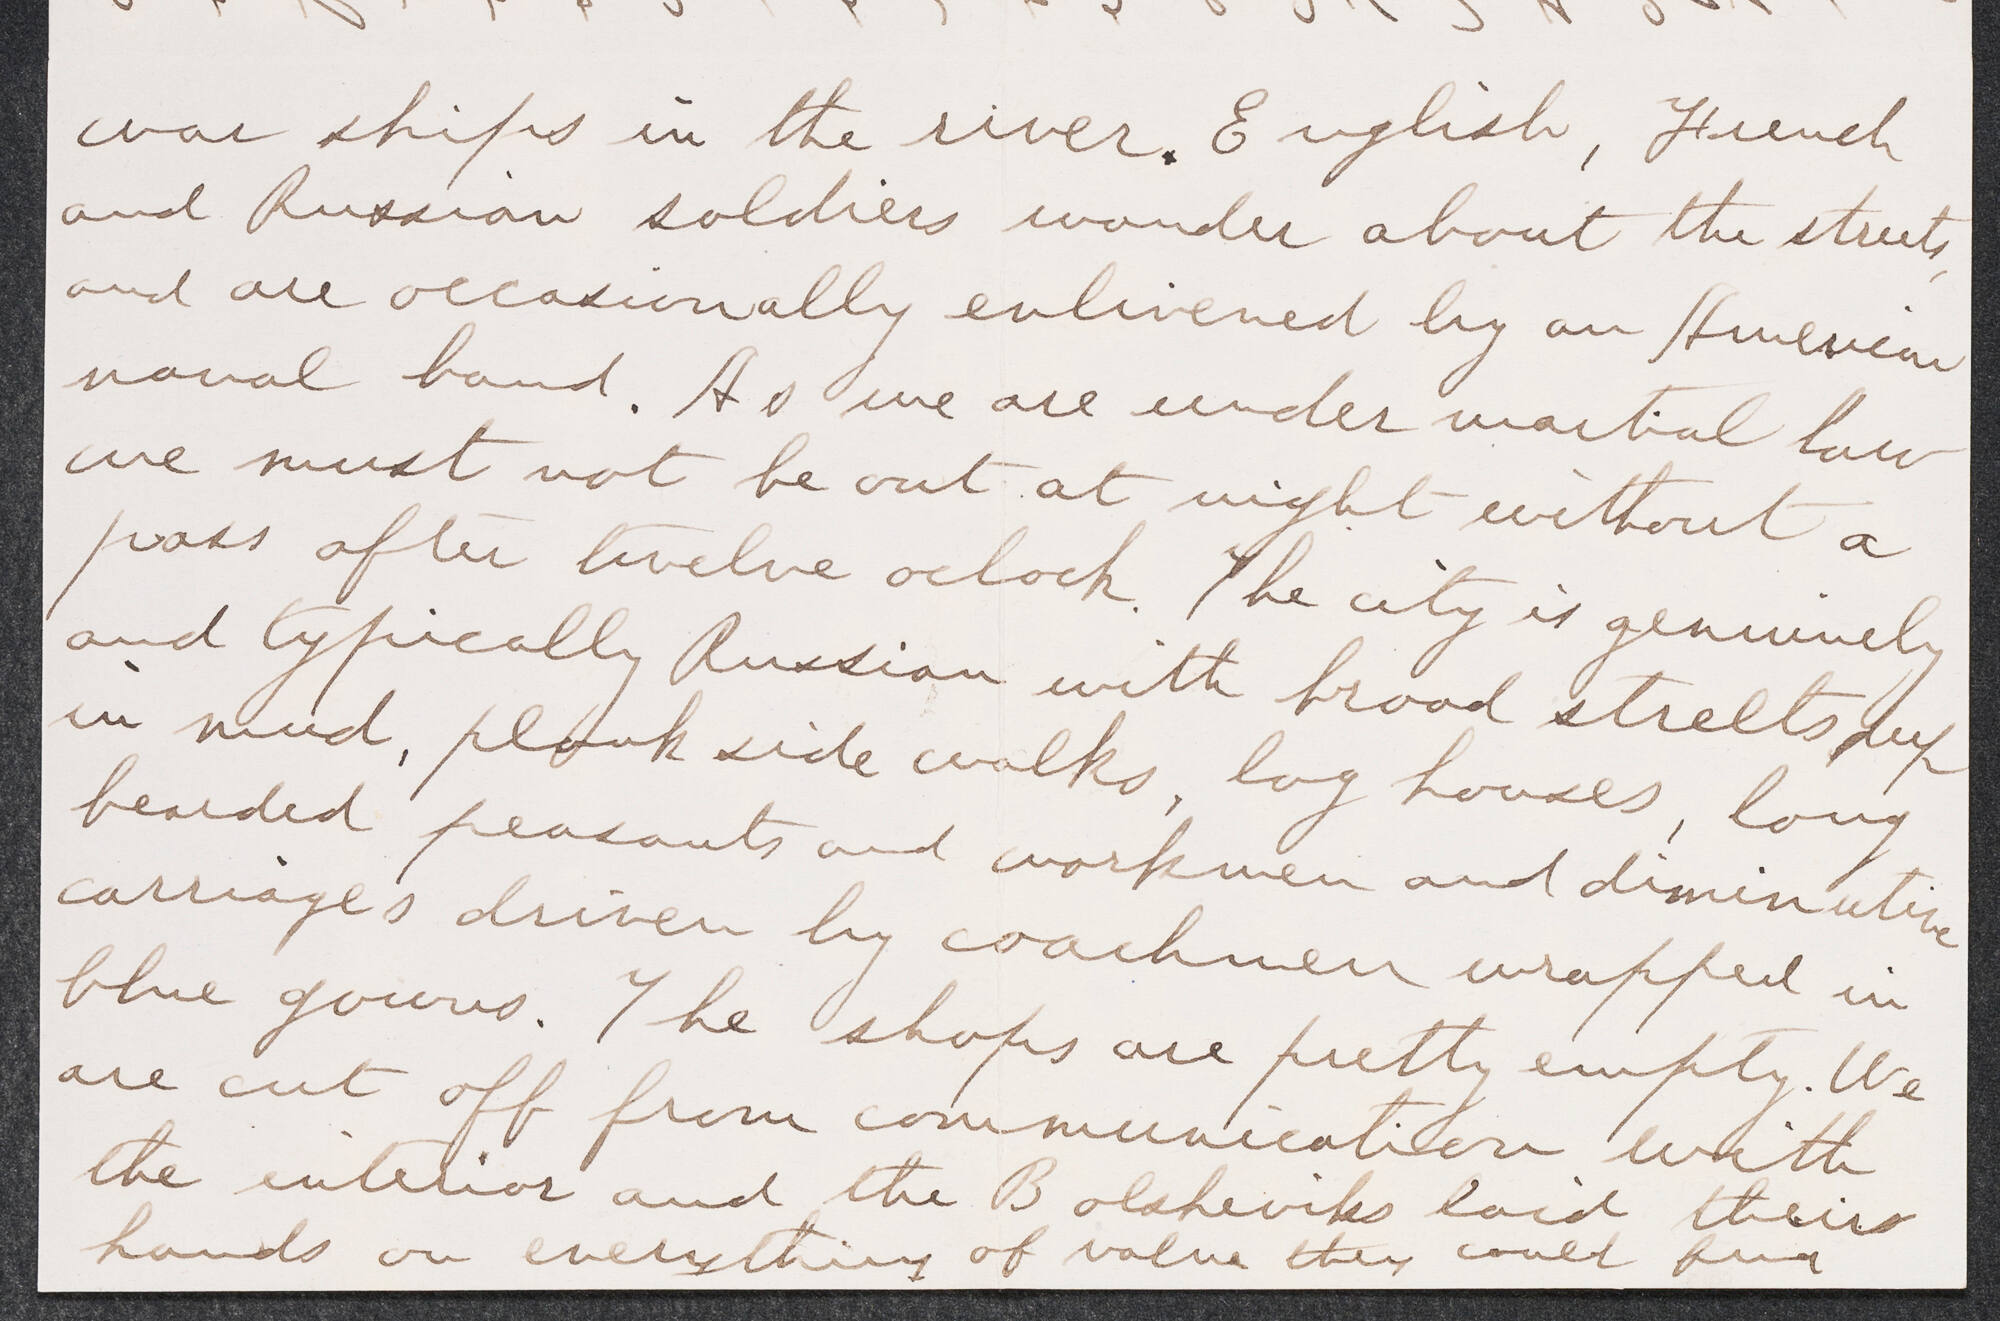 war ships in the river. English, French
and Russian soldiers wander about the streets,
and are occasionally enlivened by an American
naval band. As we are under martial law
we must not be out at night without a
pass after twelve oclock. The city is genuinely
and typically Russian with broad streets deep
in mud, plank side walks, log houses, long
bearded peasants and workmen and diminutive
carriages driven by coachmen wrapped in
blue gowns. The shops are pretty empty. We
are cut off from communication with
the interior and the Bolsheviks laid theirs
hands on everything of value they could find